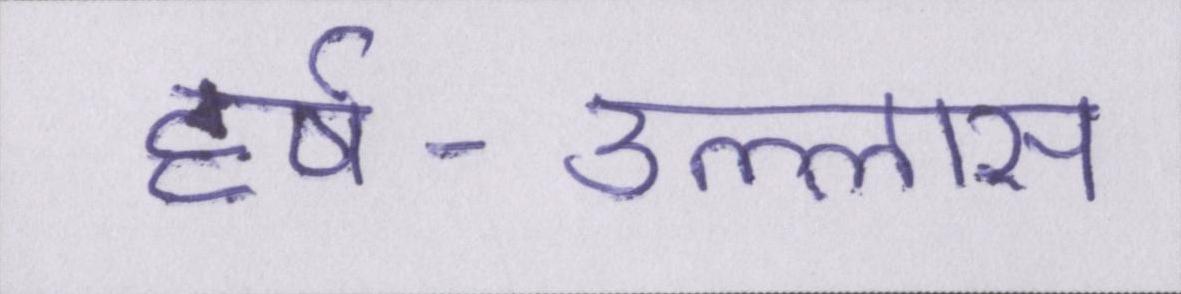 हर्ष - उल्लास